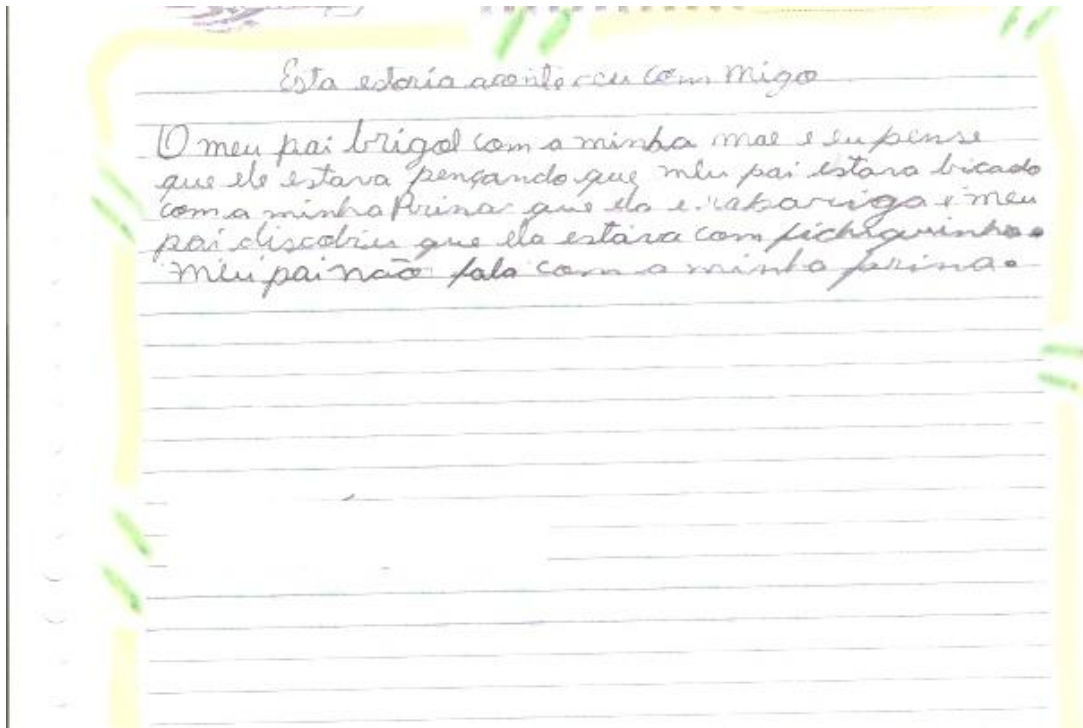 Esta estoria aconteceu com migo
O meu pai brigol com a minha mae e eu pense
que ele estava pençando que meu pai estava bicado
com a minha Prima que ela e rabariga e meu
pai discobriu que ela estava com fichiquinho.
Meu pai não fala com a minha prima.